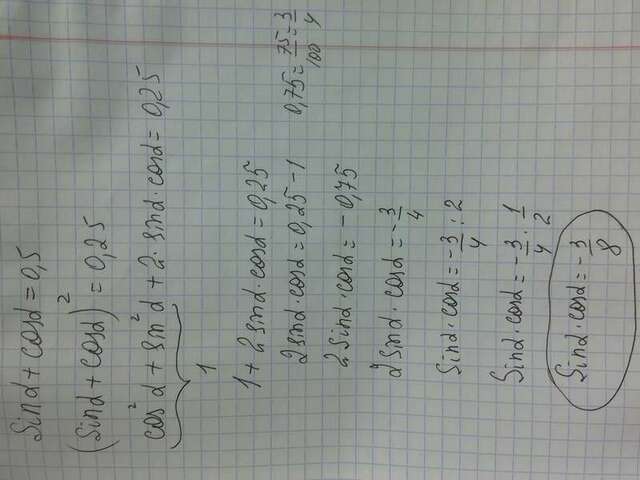 Sinα + cosα = 0,5
(Sinα + cosα)² = 0,25
cos²α + sin²α + 2· sinα · cosα = 0,25
1
1 + 2sinα · cosα = 0,25
2sinα · cosα = 0,25 - 1 0,75 = 75/100 = 3/4
2Sinα · cosα = - 0,75
2Sinα · cosα = - 3/4
Sinα · cosα = - 3/4 : 2
Sinα · cosα = - 3/4 · 1/2
Sinα · cosα = - 3/8